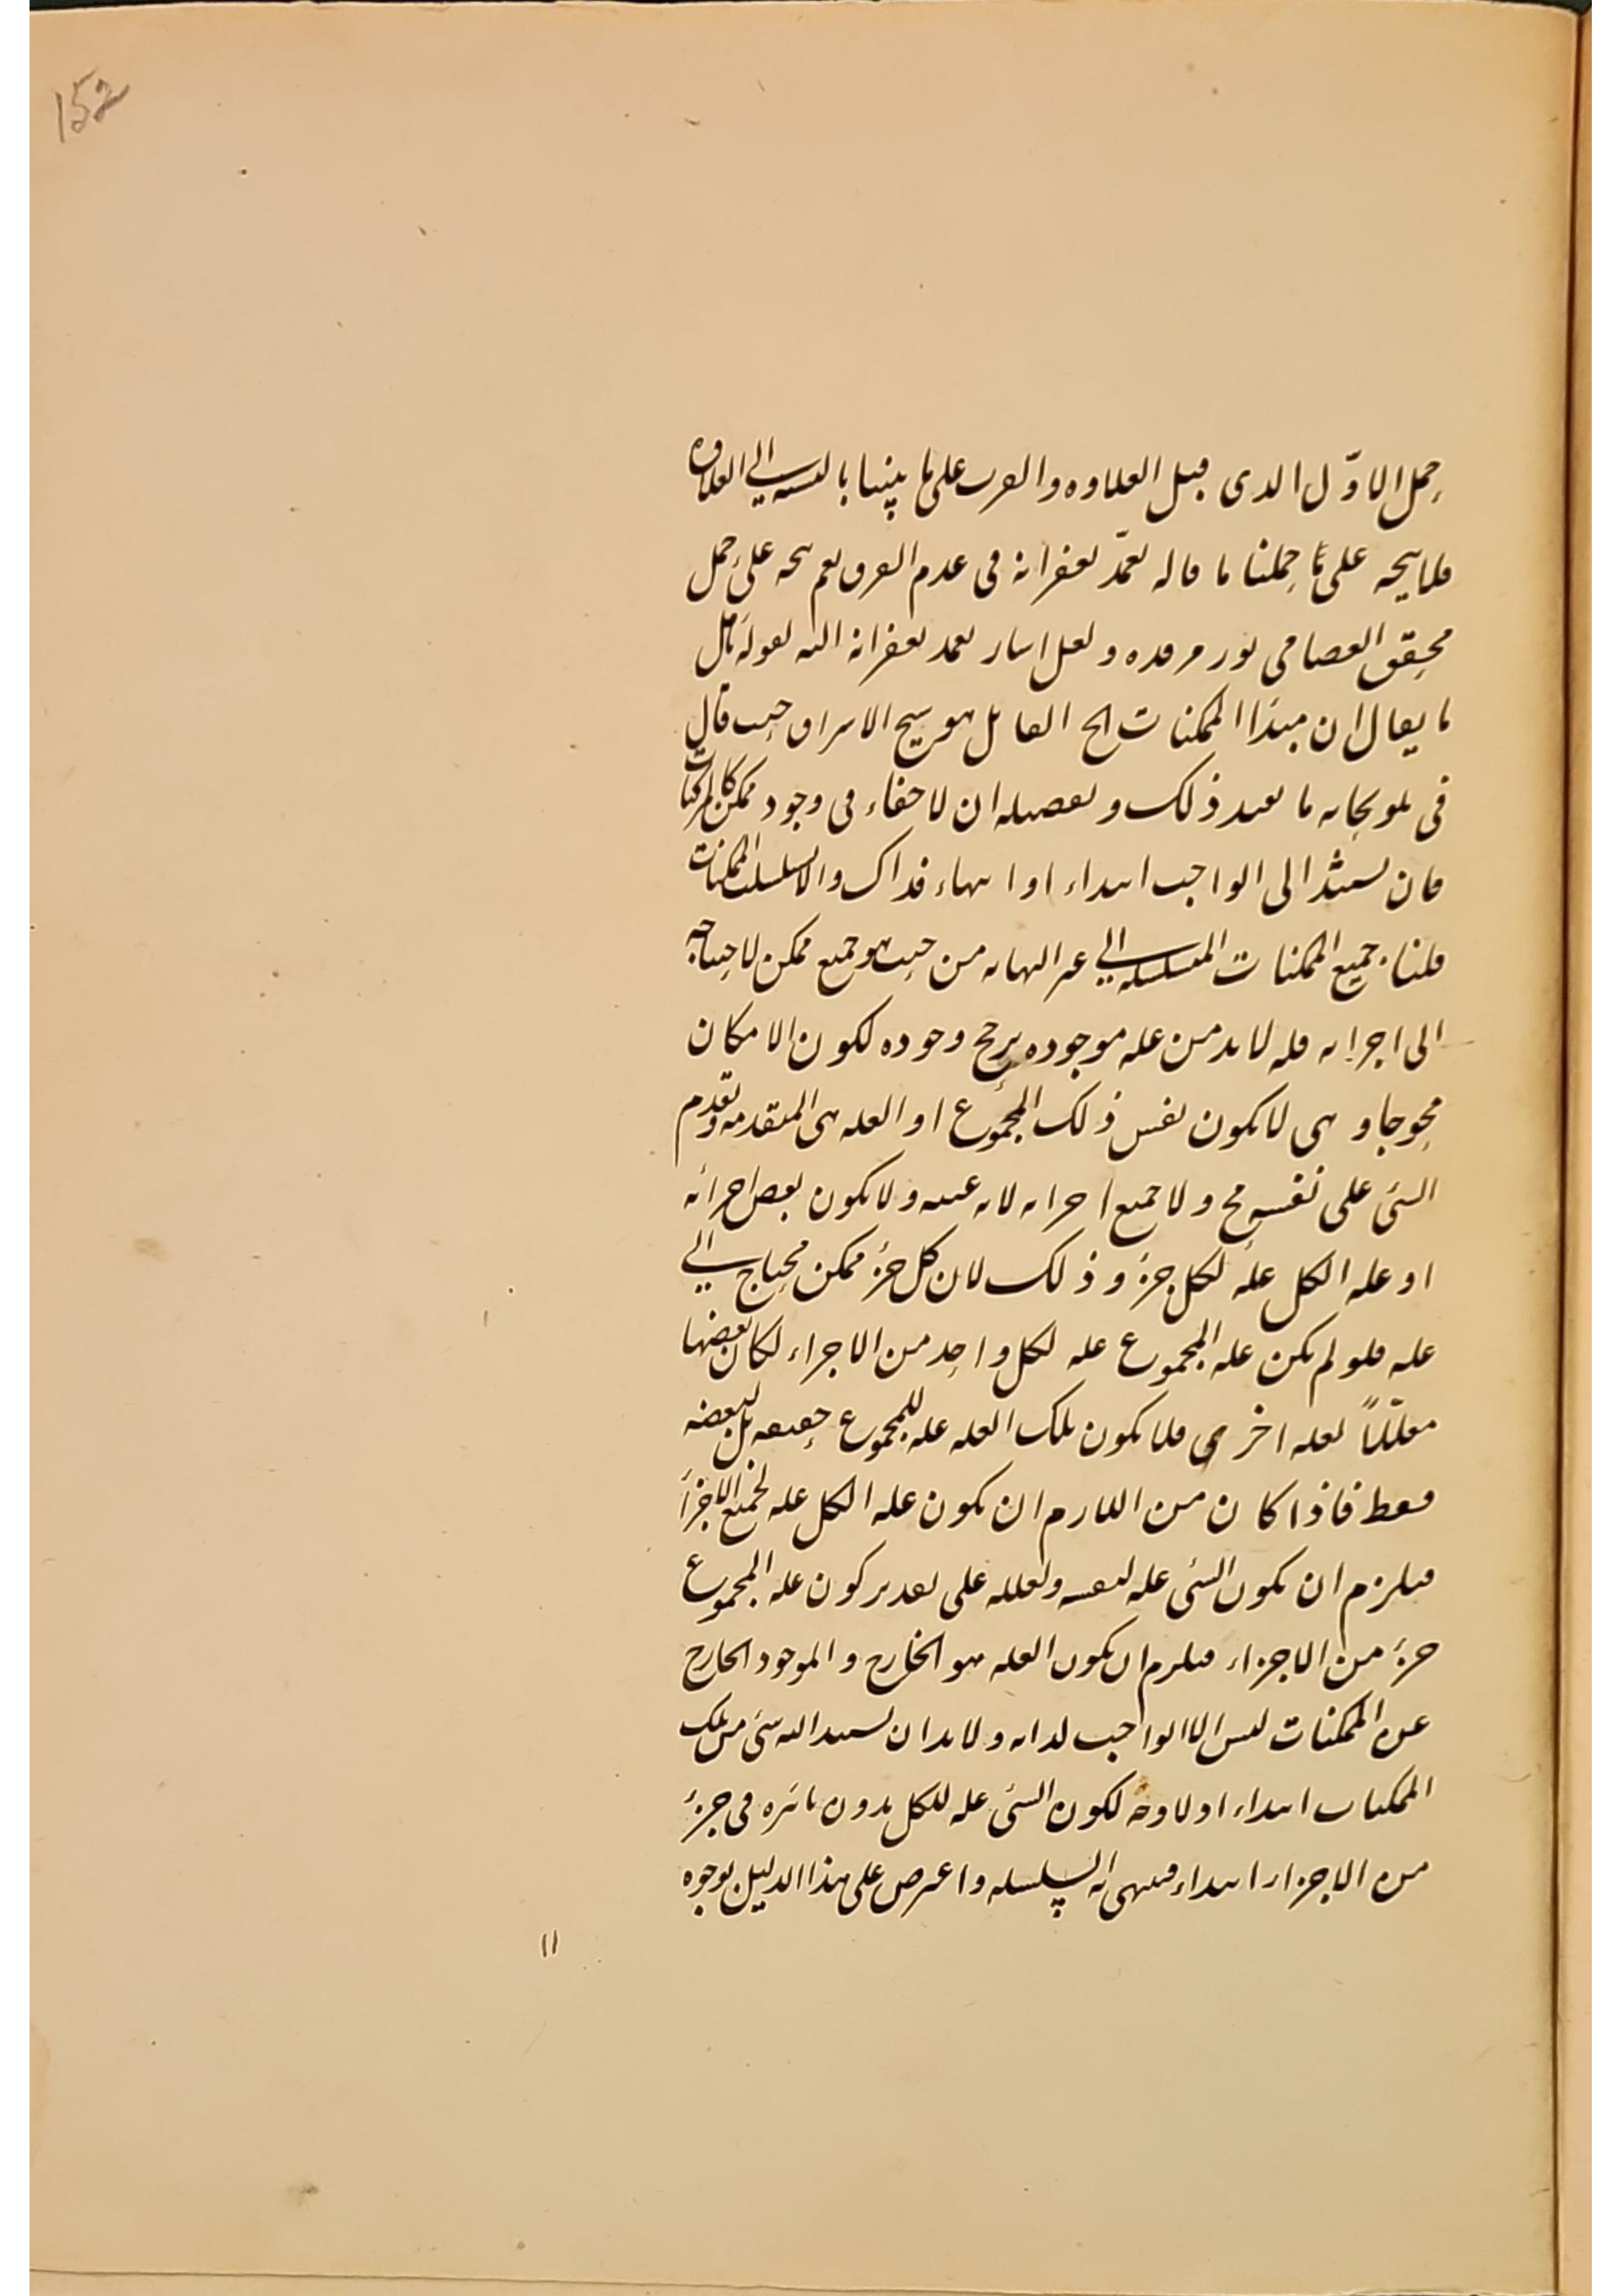 152
حمل الاوّل الذى قبل العلاوه والقرب على ما بينا بالنسبه الى العلاوه
فلا يتجه على ما حملنا ما قاله تغمّد بغفرانه فى عدم الفرق نعم يتجه على حمل
محقق العصامى نور مرقده ولعل اشار تغمد بغفرانه اليه بقوله تأمل
ما يقال ان مبدأ الممكنات الخ القائل هو شيخ الاشراق حيث قال
فى تلويحاته ما يفيد ذلك وتفصيله ان لا خفاء فى وجود ممكن كالمركبات
فان يستند الى الواجب ابتداء او انتهاء فذاك والا تسلسلت الممكنات
قلنا جميع الممكنات المتسلسله الى غير النهايه من حيث هو جميع ممكن لاحتياجه
الى اجزائه فله لابد من عله موجوده يرجح وجوده لكون الامكان
محوجا وهى لا يكون نفس ذلك المجموع اذ العله هى المتقدمه وتقدم
الشئ على نفسه مح ولا جميع اجزائه لانه عينه ولا يكون بعض اجزائه
اذ عله الكل عله لكل جزء وذلك لان كل جزء ممكن محتاج الى
عله فلو لم يكن عله المجموع عله لكل واحد من الاجزاء لكان بعضها
معلّلاً لعله اخرى فلا يكون تلك العله عله للمجموع حقيقه بل لبعضه
فقط فاذا كان من اللازم ان يكون عله الكل عله لجميع الاجزاء
فيلزم ان يكون الشئ عله لنفسه ولعلله على تقدير كون عله المجموع
جزء من الاجزاء فيلزم ان يكون العله هو الخارج والموجود الخارج
عن الممكنات ليس الا الواجب لذاته ولابد ان يستند اليه شئ من تلك
الممكنات ابتداء اذ لا وجه لكون الشئ عله للكل بدون تأثيره فى جزء
من الاجزاء ابتداء فينتهى اليه السلسله واعترض على هذا الدليل بوجوه
١١